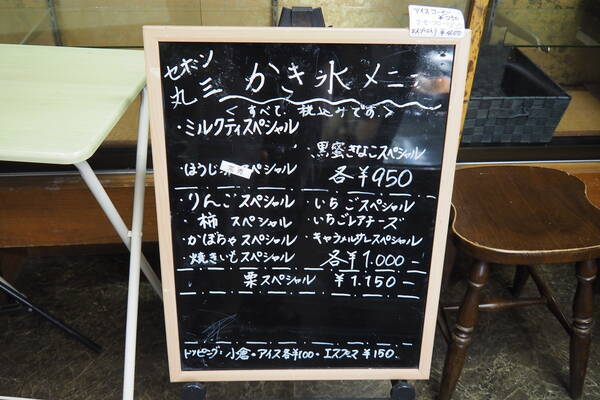 アイスコーヒー
¥350
¥400
セボン
丸三 かき氷メニュー
<すべて、税込みです。>
・ミルクティスペシャル
・黒蜜きなこスペシャル
・ほうじ茶スペシャル
各¥950
・りんごスペシャル
・いちごスペシャル
・柿スペシャル
・いちごレアチーズ
・かぼちゃスペシャル
・キャラメルサレスペシャル
・焼きいもスペシャル
各¥1.000-
栗スペシャル ¥1.150-
トッピング・小倉・アイス各¥100・エスプーマ¥150.